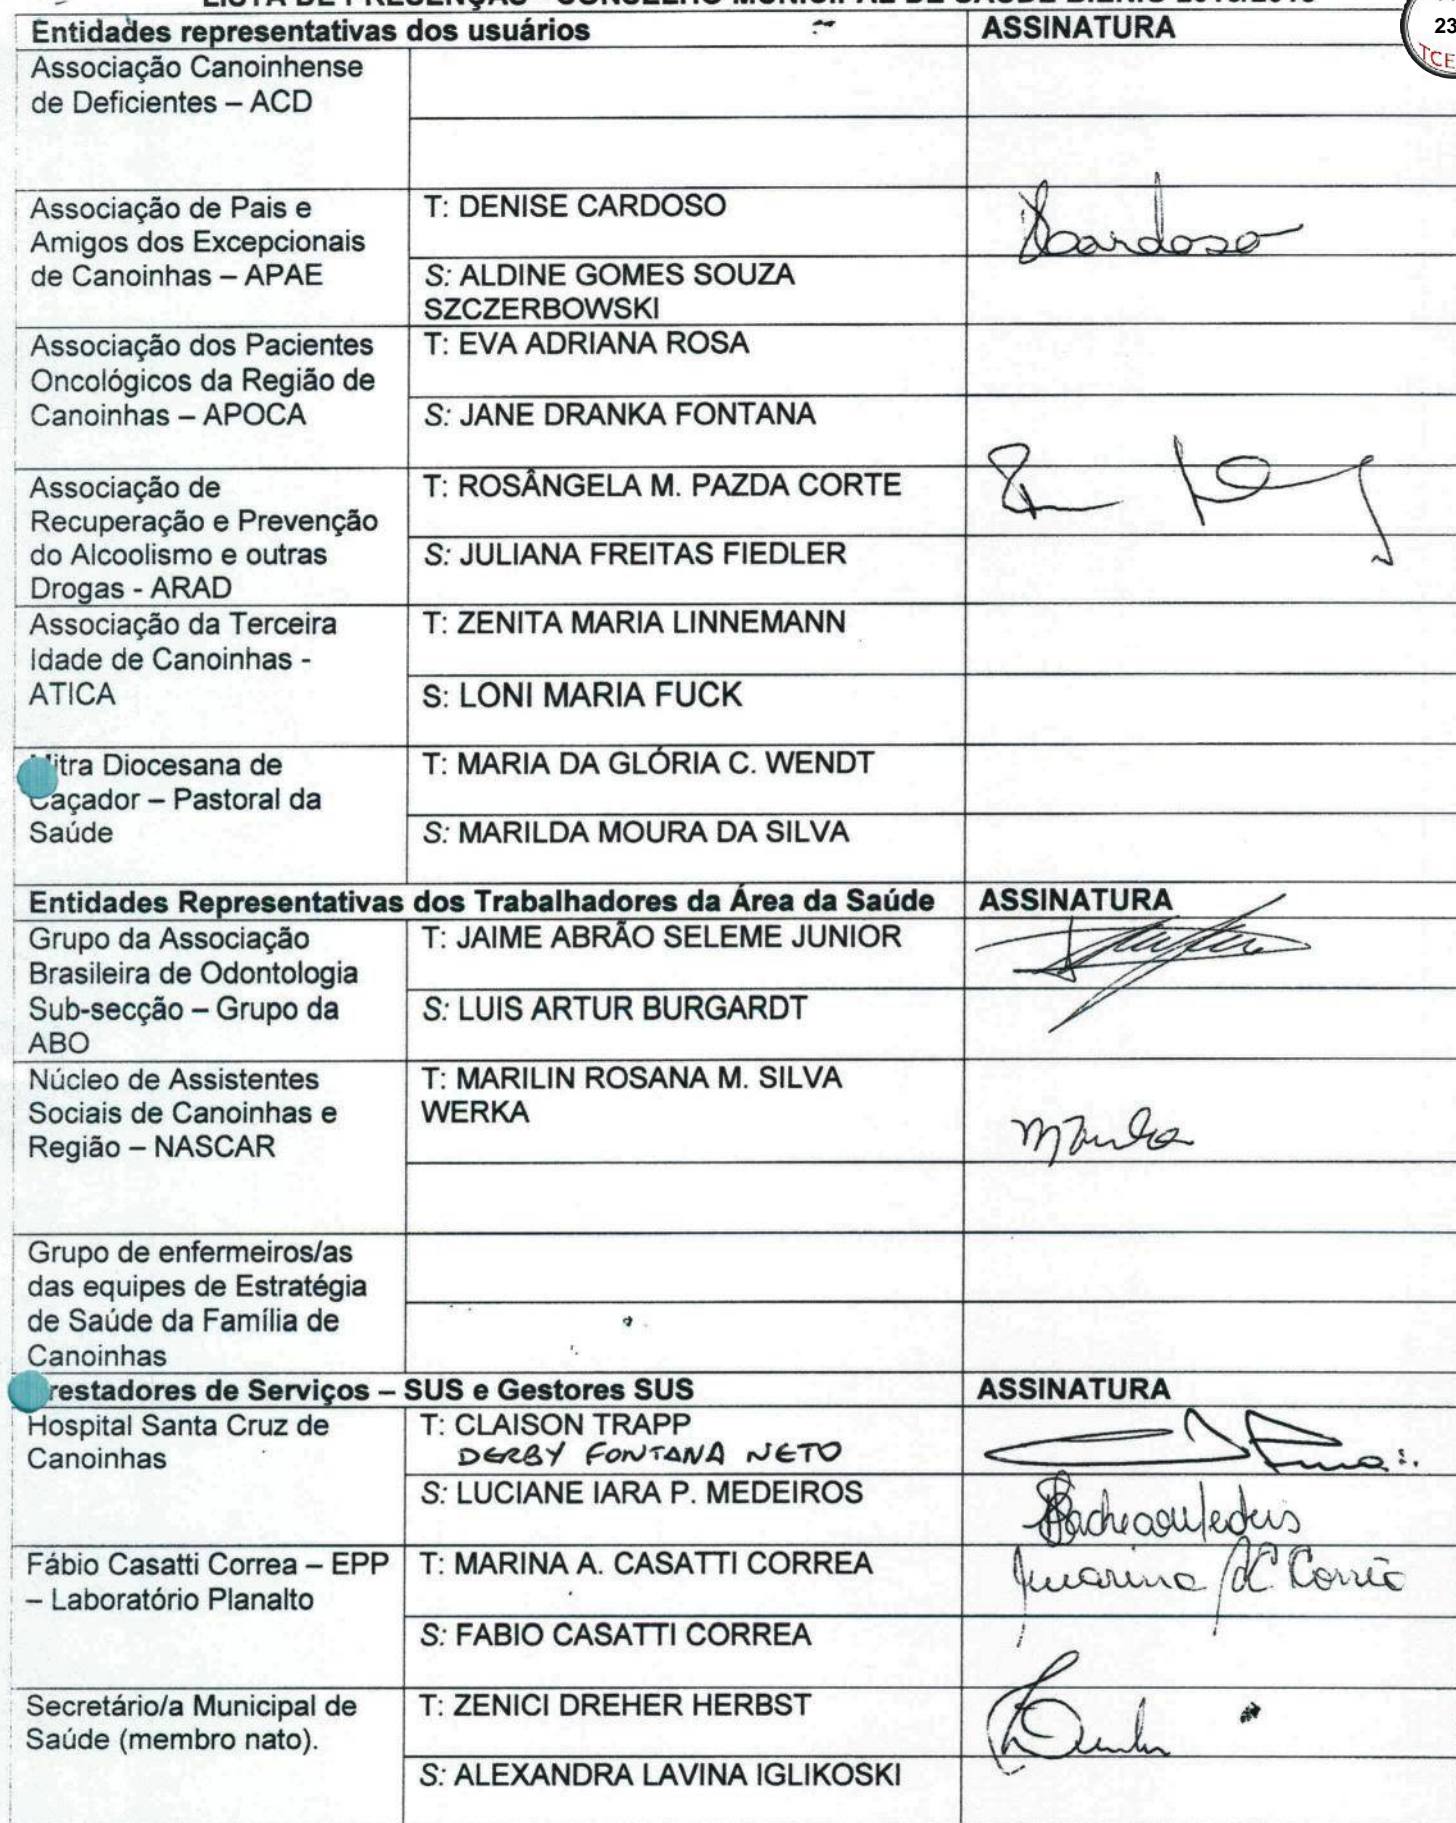 LISTA DE PRESENÇAS - CONSELHO MUNICIPAL DE SAÚDE BIÊNIO
Entidades representativas dos usuários
ASSINATURA
23
TCE
Associação Canoinhense
de Deficientes – ACD
Associação de Pais e
Amigos dos Excepcionais
de Canoinhas – APAE
T: DENISE CARDOSO
DCardoso
S: ALDINE GOMES SOUZA
SZCZERBOWSKI
Associação dos Pacientes
Oncológicos da Região de
Canoinhas – APOCA
T: EVA ADRIANA ROSA
S: JANE DRANKA FONTANA
Associação de
Recuperação e Prevenção
do Alcoolismo e outras
Drogas - ARAD
T: ROSÂNGELA M. PAZDA CORTE
S: JULIANA FREITAS FIEDLER
Associação da Terceira
Idade de Canoinhas -
ATICA
T: ZENITA MARIA LINNEMANN
S: LONI MARIA FUCK
itra Diocesana de
Caçador – Pastoral da
Saúde
T: MARIA DA GLÓRIA C. WENDT
S: MARILDA MOURA DA SILVA
Entidades Representativas dos Trabalhadores da Área da Saúde
ASSINATURA
Grupo da Associação
Brasileira de Odontologia
Sub-secção – Grupo da
ABO
T: JAIME ABRÃO SELEME JUNIOR
S: LUIS ARTUR BURGARDT
Núcleo de Assistentes
Sociais de Canoinhas e
Região – NASCAR
T: MARILIN ROSANA M. SILVA
WERKA
Grupo de enfermeiros/as
das equipes de Estratégia
de Saúde da Família de
Canoinhas
restadores de Serviços – SUS e Gestores SUS
ASSINATURA
Hospital Santa Cruz de
Canoinhas
T: CLAISON TRAPP
DERBY FONTANA NETO
S: LUCIANE IARA P. MEDEIROS
Fábio Casatti Correa – EPP
– Laboratório Planalto
T: MARINA A. CASATTI CORREA
Marina AC Corrêa
S: FABIO CASATTI CORREA
Secretário/a Municipal de
Saúde (membro nato).
T: ZENICI DREHER HERBST
S: ALEXANDRA LAVINA IGLIKOSKI